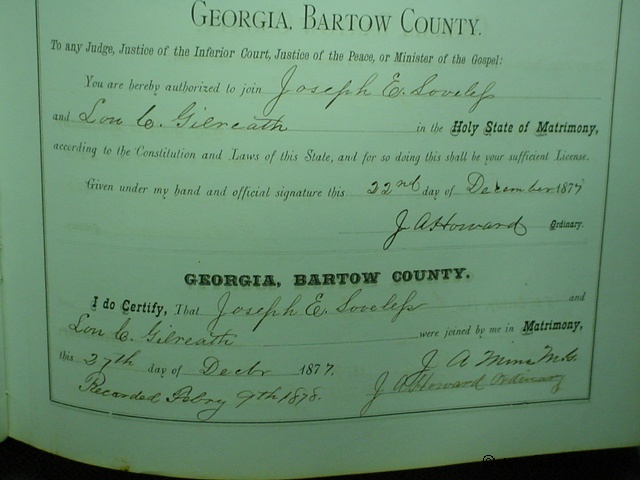 GEORGIA, BARTOW COUNTY.
To any Judge, Justice of the Inferior Court, Justice of the Peace, or Minister of the Gospel:
You are hereby authorized to join Joseph E. Loveless
and Lou C. Gilreath in the Holy State of Matrimony,
according to the Constitution and Laws of this State, and for so doing this shall be your sufficient License.
Given under my hand and official signature this 22nd day of December 1877
J A Howard Ordinary.
GEORGIA, BARTOW COUNTY.
I do Certify, That Joseph E. Loveless and
Lou C. Gilreath were joined by me in Matrimony,
this 27th day of Decbr 1877. J A Mims M.G.
Recorded Febry 9th 1878. J A Howard Ordinary